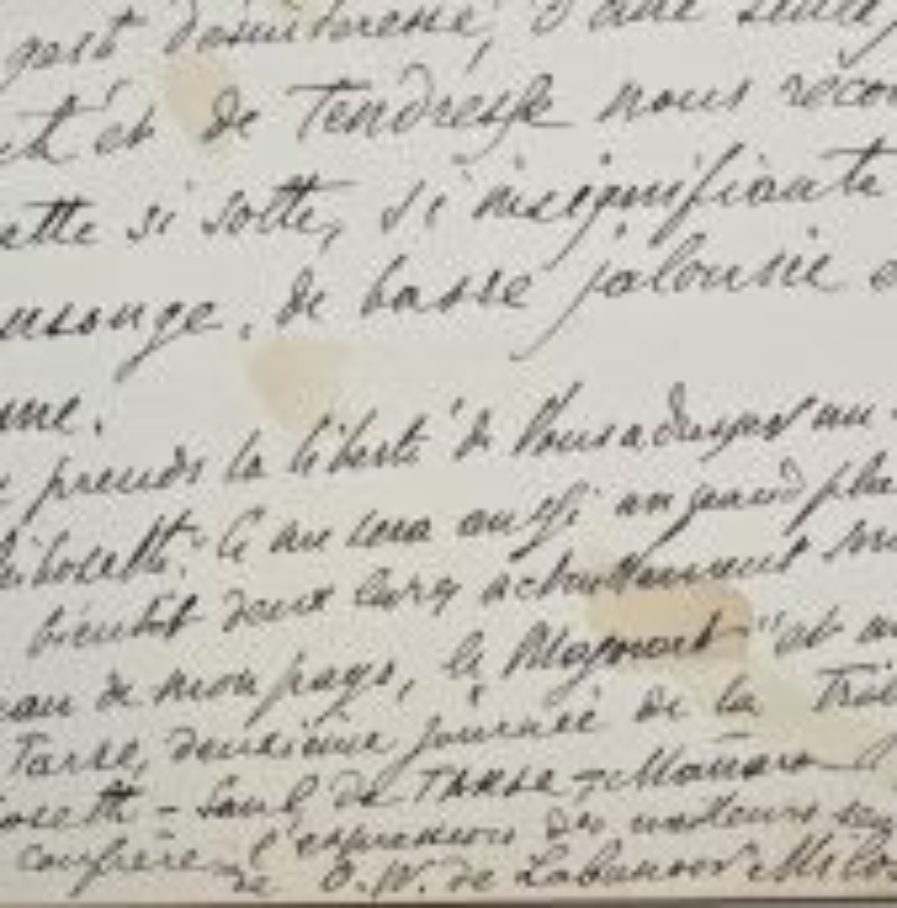 gest désintéressé, d'une seule
et de Tendresse nous réco
ette si sotte, si insignifiante
ensonge, de basse jalousie
me.
prends la liberté de Vous adresser un
iboseth." Ce me sera aussi un grand pla
bientôt deux livres actuellement
eau de mon pays, le Magnat" et
Tarse, deuxième journée de la Tril
oseth - Saul de Tarse - Mañara
confrère, l'expression des meilleurs sen
de O.W. de Labunoov Milos